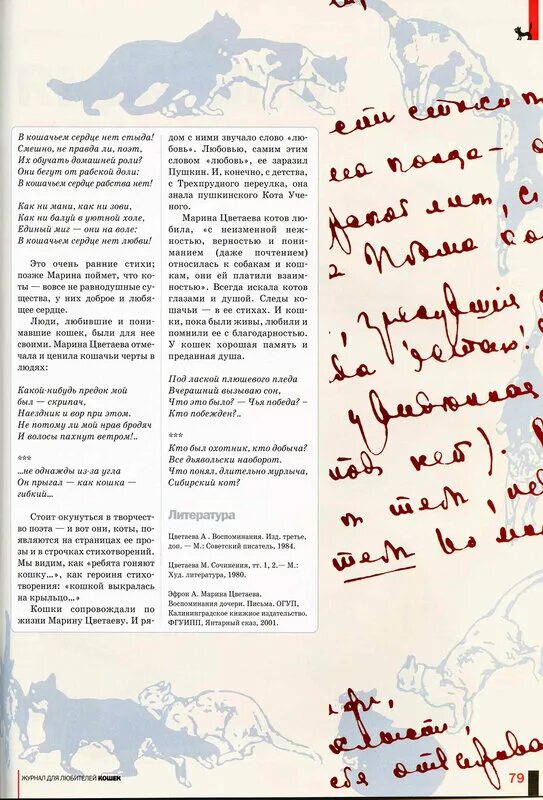 В кошачьем сердце нет стыда!
Смешно, не правда ли, поэт,
Их обучать домашней роли?
Они бегут от рабской доли:
В кошачьем сердце рабства нет!
Как ни мани, как ни зови,
Как ни балуй в уютной холе,
Единый миг — они на воле:
В кошачьем сердце нет любви!
Это очень ранние стихи;
позже Марина поймет, что ко-
ты — вовсе не равнодушные су-
щества, у них доброе и любя-
щее сердце.
Люди, любившие и пони-
мавшие кошек, были для нее
своими. Марина Цветаева отме-
чала и ценила кошачьи черты в
людях:
Какой-нибудь предок мой
был — скрипач,
Наездник и вор при этом.
Не потому ли мой нрав бродяч
И волосы пахнут ветром!..
***
...не однажды из-за угла
Он прыгал — как кошка —
гибкий...
Стоит окунуться в творчест-
во поэта — и вот они, коты, по-
являются на страницах ее про-
зы и в строчках стихотворений.
Мы видим, как «ребята гоняют
кошку...», как героиня стихо-
творения: «кошкой выкралась
на крыльцо...»
Кошки сопровождали по
жизни Марину Цветаеву. И ря-
дом с ними звучало слово «лю-
бовь». Любовью, самим этим
словом «любовь», ее заразил
Пушкин. И, конечно, с детства,
с Трехпрудного переулка, она
знала пушкинского Кота Уче-
ного.
Марина Цветаева котов лю-
била, «с неизменной неж-
ностью, верностью и пони-
манием (даже почтением)
относилась к собакам и кош-
кам, они ей платили взаим-
ностью». Всегда искала котов
глазами и душой. Следы ко-
шачьи — в ее стихах. И кош-
ки, пока были живы, любили и
помнили ее с благодарностью.
У кошек хорошая память и
преданная душа.
Под лаской плюшевого пледа
Вчерашний вызываю сон,
Что это было? — Чья победа? –
Кто побежден?..
***
Кто был охотник, кто добыча?
Все дьявольски наоборот.
Что понял, длительно мурлыча,
Сибирский кот?
Литература
Цветаева А . Воспоминания. Изд. третье,
доп. — М.: Советский писатель, 1984.
Цветаева М. Сочинения, тт. 1, 2.— М.:
Худ. литература, 1980.
Эфрон А. Марина Цветаева.
Воспоминания дочери. Письма. ОГУП,
Калининградское книжное издательство.
ФГУИПП, Янтарный сказ, 2001.
ЖУРНАЛ ДЛЯ ЛЮБИТЕЛЕЙ КОШЕК
79